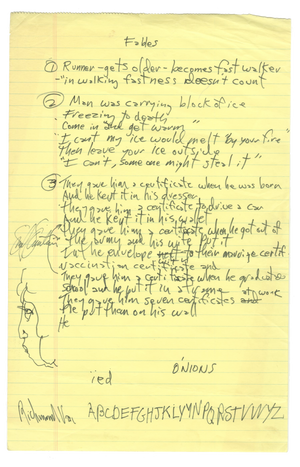 Fables
① Runner - gets older - becomes fast walker
- "in walking fastness doesn't count
② Man was carrying block of ice
Freezing to death
Come in and get warm"
"I can't my ice would melt by your fire"
Then leave your ice outside
"I can't, some one might steal it"
③ They gave him a certificate when he was born
And he kept it in his dresser
They gave him a certificate to drive a car
And he kept it in his wallet
They gave him a certificate when he got out of
The army and his wife put it
In the envelope next to their marriage certif
vaccination certificate and
They gave him a certificate when he graduated
school and he put it in a frame
at work
They gave him seven certificates and
He put them on his wall
He
ied
O'NIONS
Richmond
ABCDEFGHJKLMNPQRSTVWYZ